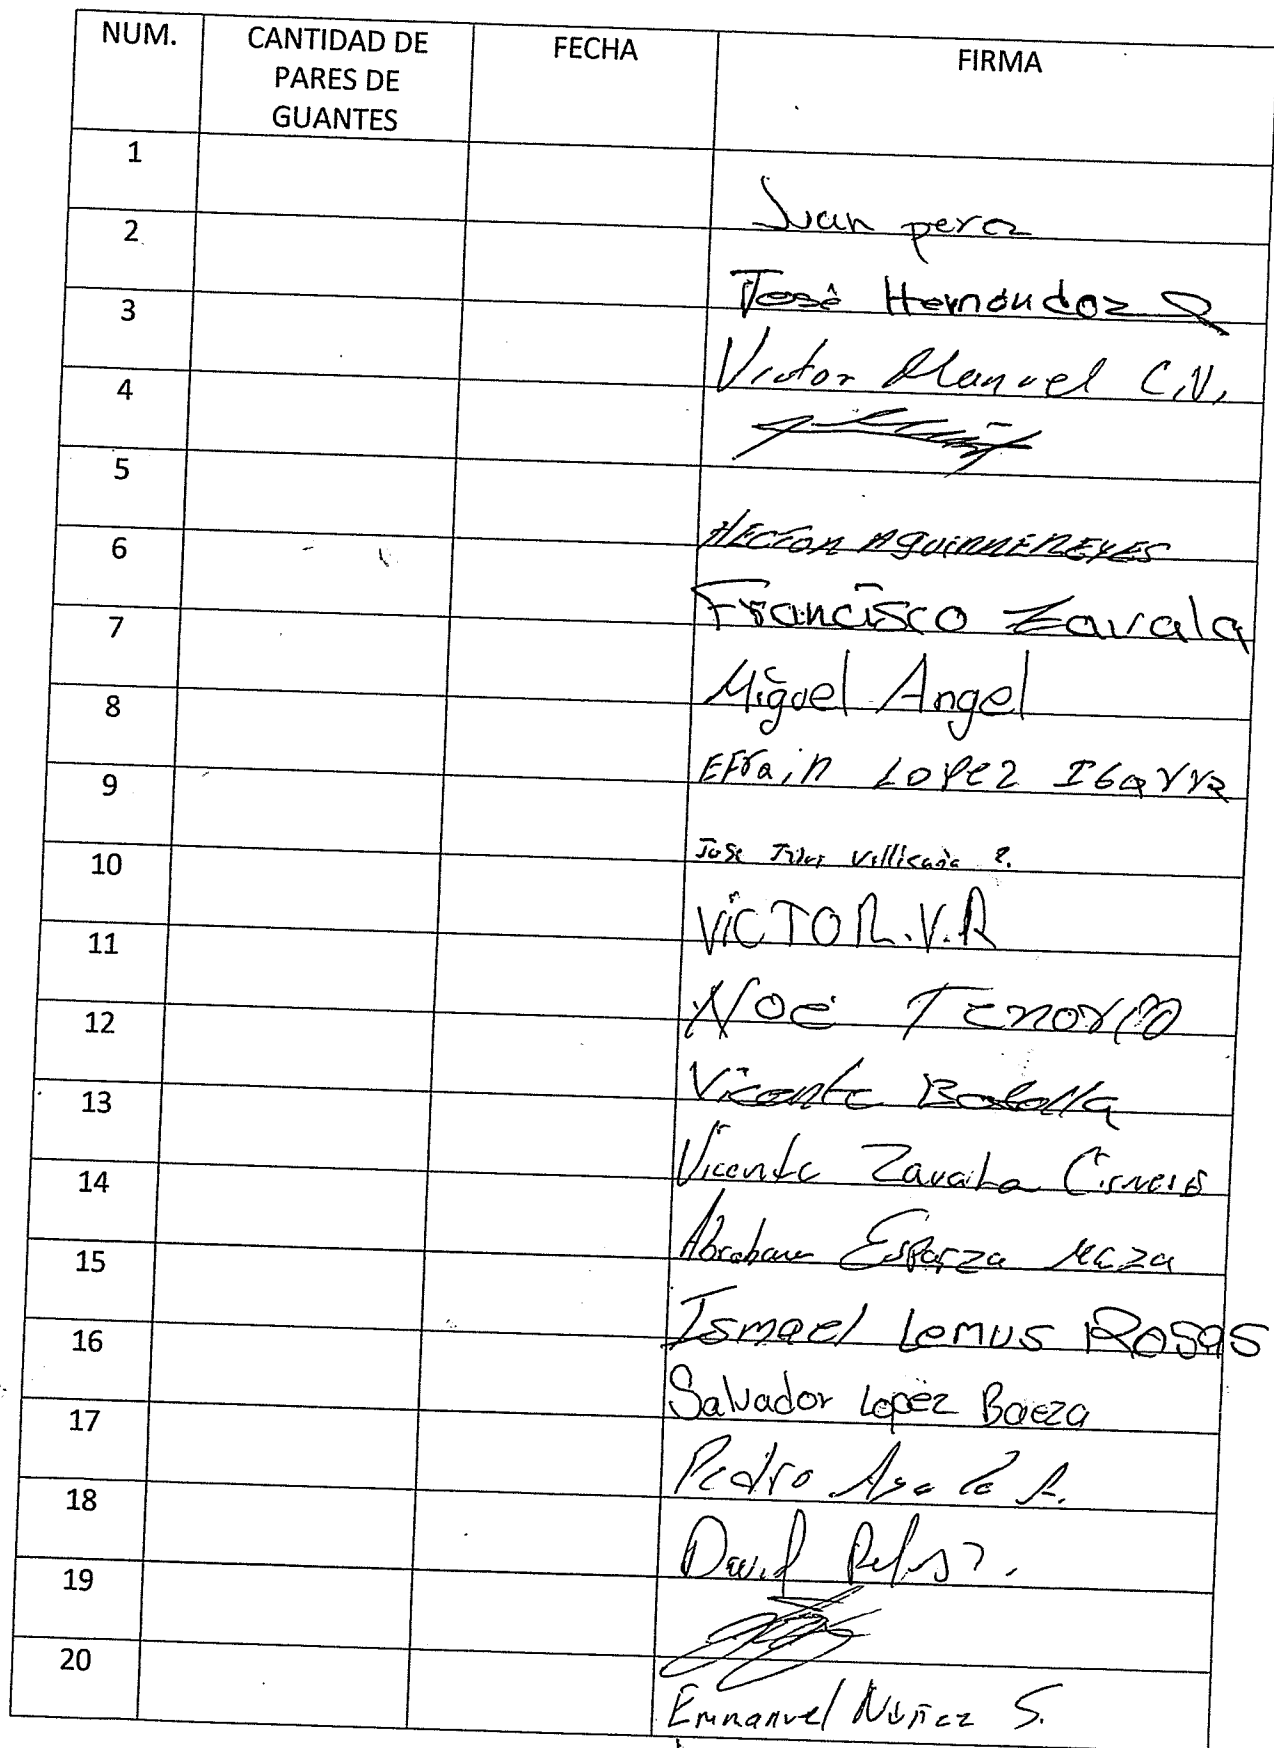 NUM. CANTIDAD DE PARES DE GUANTES FECHA FIRMA
1 Juan perez
2 José Hernández
3 Victor Manuel C.V.
4
5 HECTOR AGUIRRE REYES
6 Francisco Zavala
7 Miguel Angel
8 EFrain LoPez IbaYYa
9 Jose Villicaña
10 VICTOR.V.R
11 NOE TENORIO
12 Vicente
13 Vicente Zavala Cisneros
14 Abraham Esparza Meza
15 Ismael Lemus Rosas
16 Salvador Lopez Baeza
17 Pedro
18 David
19
20 Emmanuel Núñez S.